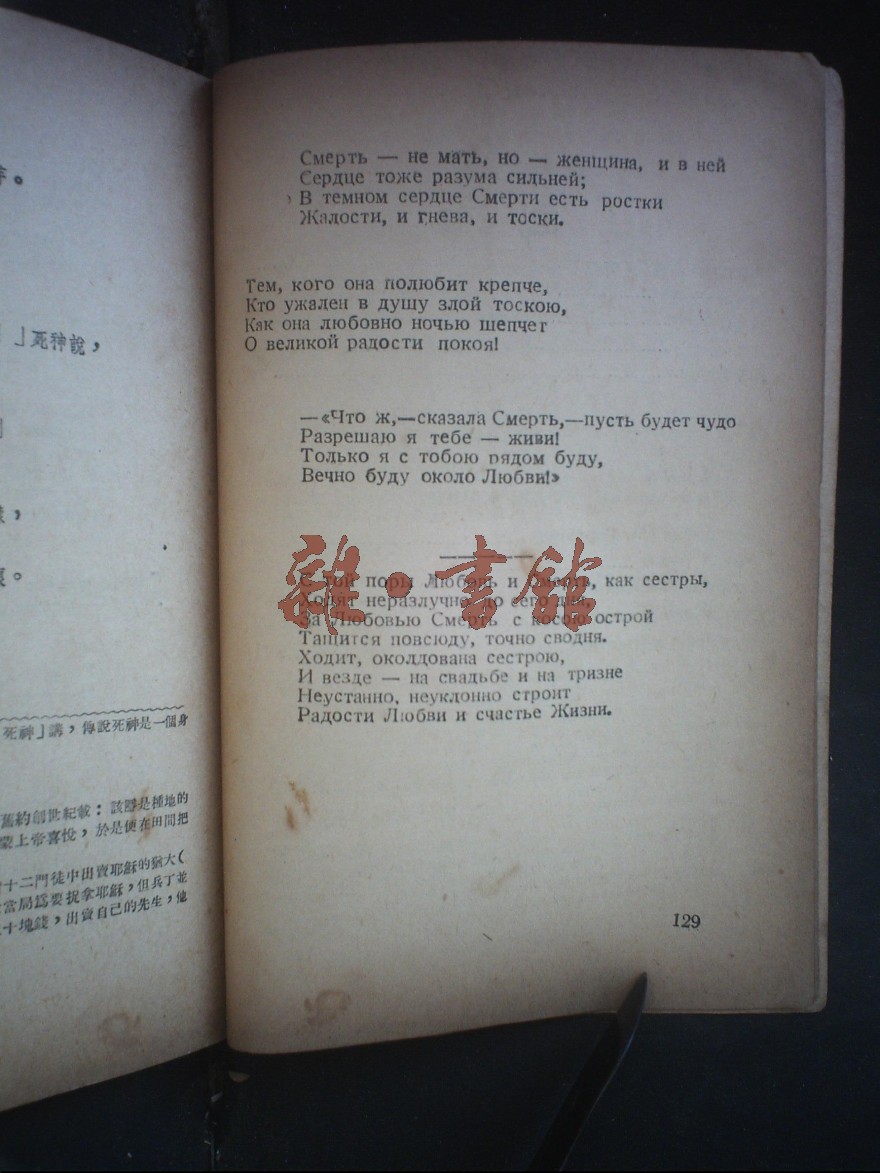 」死神說，
死神」講，傳說死神是一個身
舊約創世紀載：該隱是種地的
蒙上帝喜悅，於是便在田間把
十二門徒中出賣耶穌的猶大（
當局爲要捉拿耶穌，但兵丁並
十塊錢，出賣自己的先生，他
Смерть — не мать, но — женщина, и в ней
Сердце тоже разума сильней;
В темном сердце Смерти есть ростки
Жалости, и гнева, и тоски.
Тем, кого она полюбит крепче,
Кто ужален в душу злой тоскою,
Как она любовно ночью шепчет
О великой радости покоя!
—«Что ж,—сказала Смерть,—пусть будет чудо
Разрешаю я тебе — живи!
Только я с тобою рядом буду,
Вечно буду около Любви!»
С той поры Любовь и Смерть, как сестры,
Ходят неразлучно до сего дня,
За Любовью Смерть с косою острой
Тащится повсюду, точно сводня.
Ходит, околдована сестрою,
И везде — на свадьбе и на тризне
Неустанно, неуклонно строит
Радости Любви и счастье Жизни.
129
雜·書館